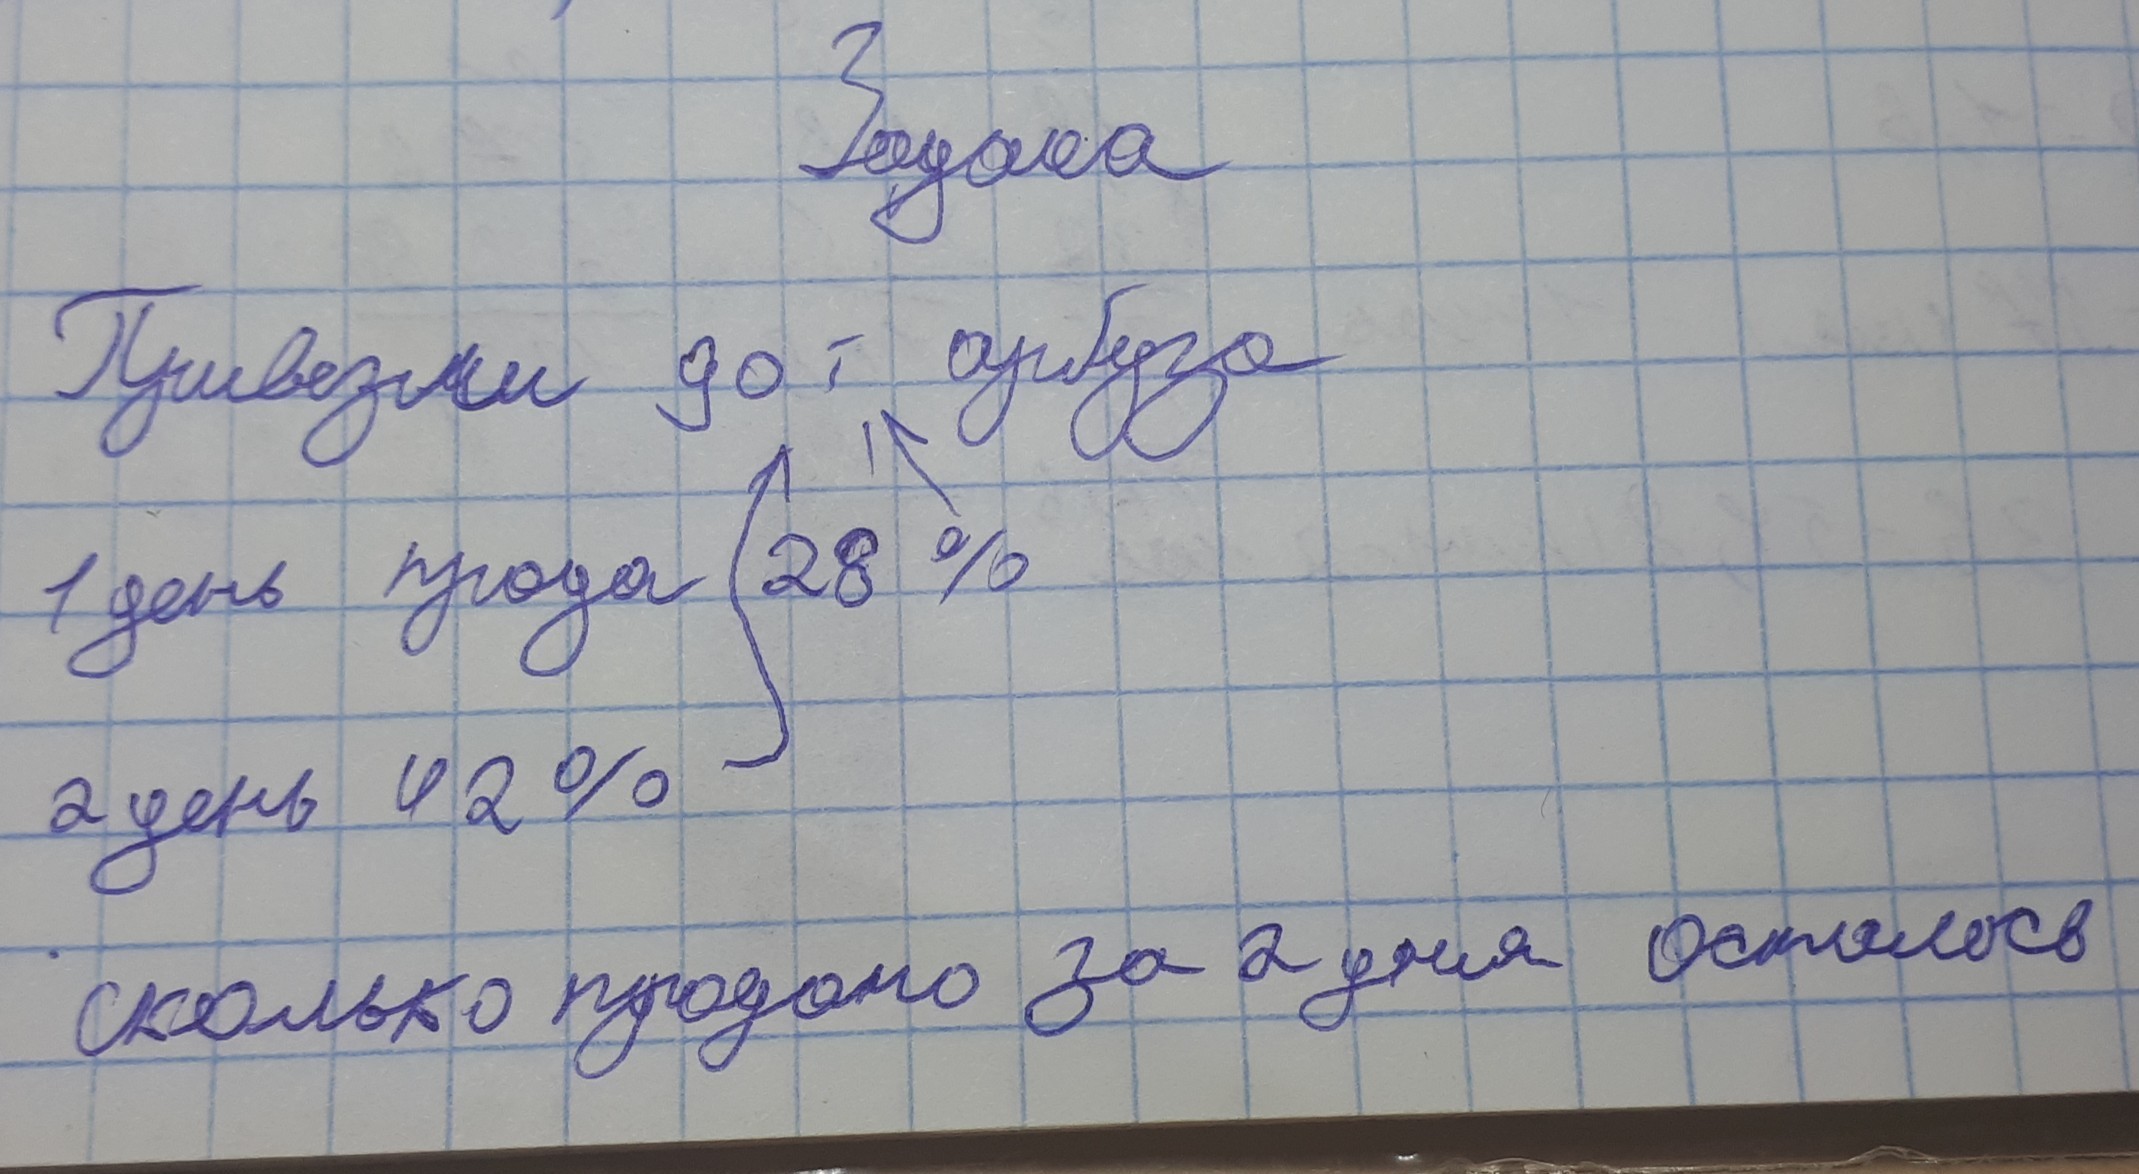 Задача
Привезли 90 т арбуза
1 день прода 28 %
2 день 42 %
сколько продано за 2 дня осталось